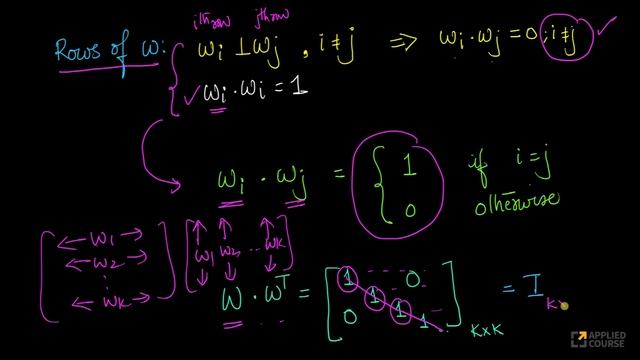 ith row jth row
Rows of W: wi ⊥ wj , i ≠ j ⇒ wi · wj = 0 ; i ≠ j ✓
✓ wi · wi = 1
wi · wj = { 1 if i = j
0 otherwise
← w1 →
← w2 →
⋮
← wk →
↑ ↑ ↑
w1 w2 ... wk
↓ ↓ ↓
W · Wᵀ = [ 1 0 1 1 0 1 ] k×k = I k×
APPLIED
COURSE